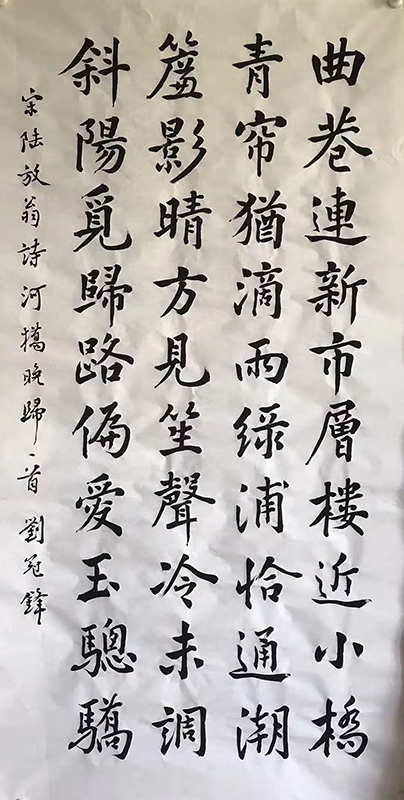 曲巷連新市層樓近小橋
青帘猶滴雨綠浦恰通潮
簾影晴方見笙聲冷未調
斜陽覓歸路偏愛玉驄驕
宋陸放翁詩河橋晚歸一首 劉冠鋒